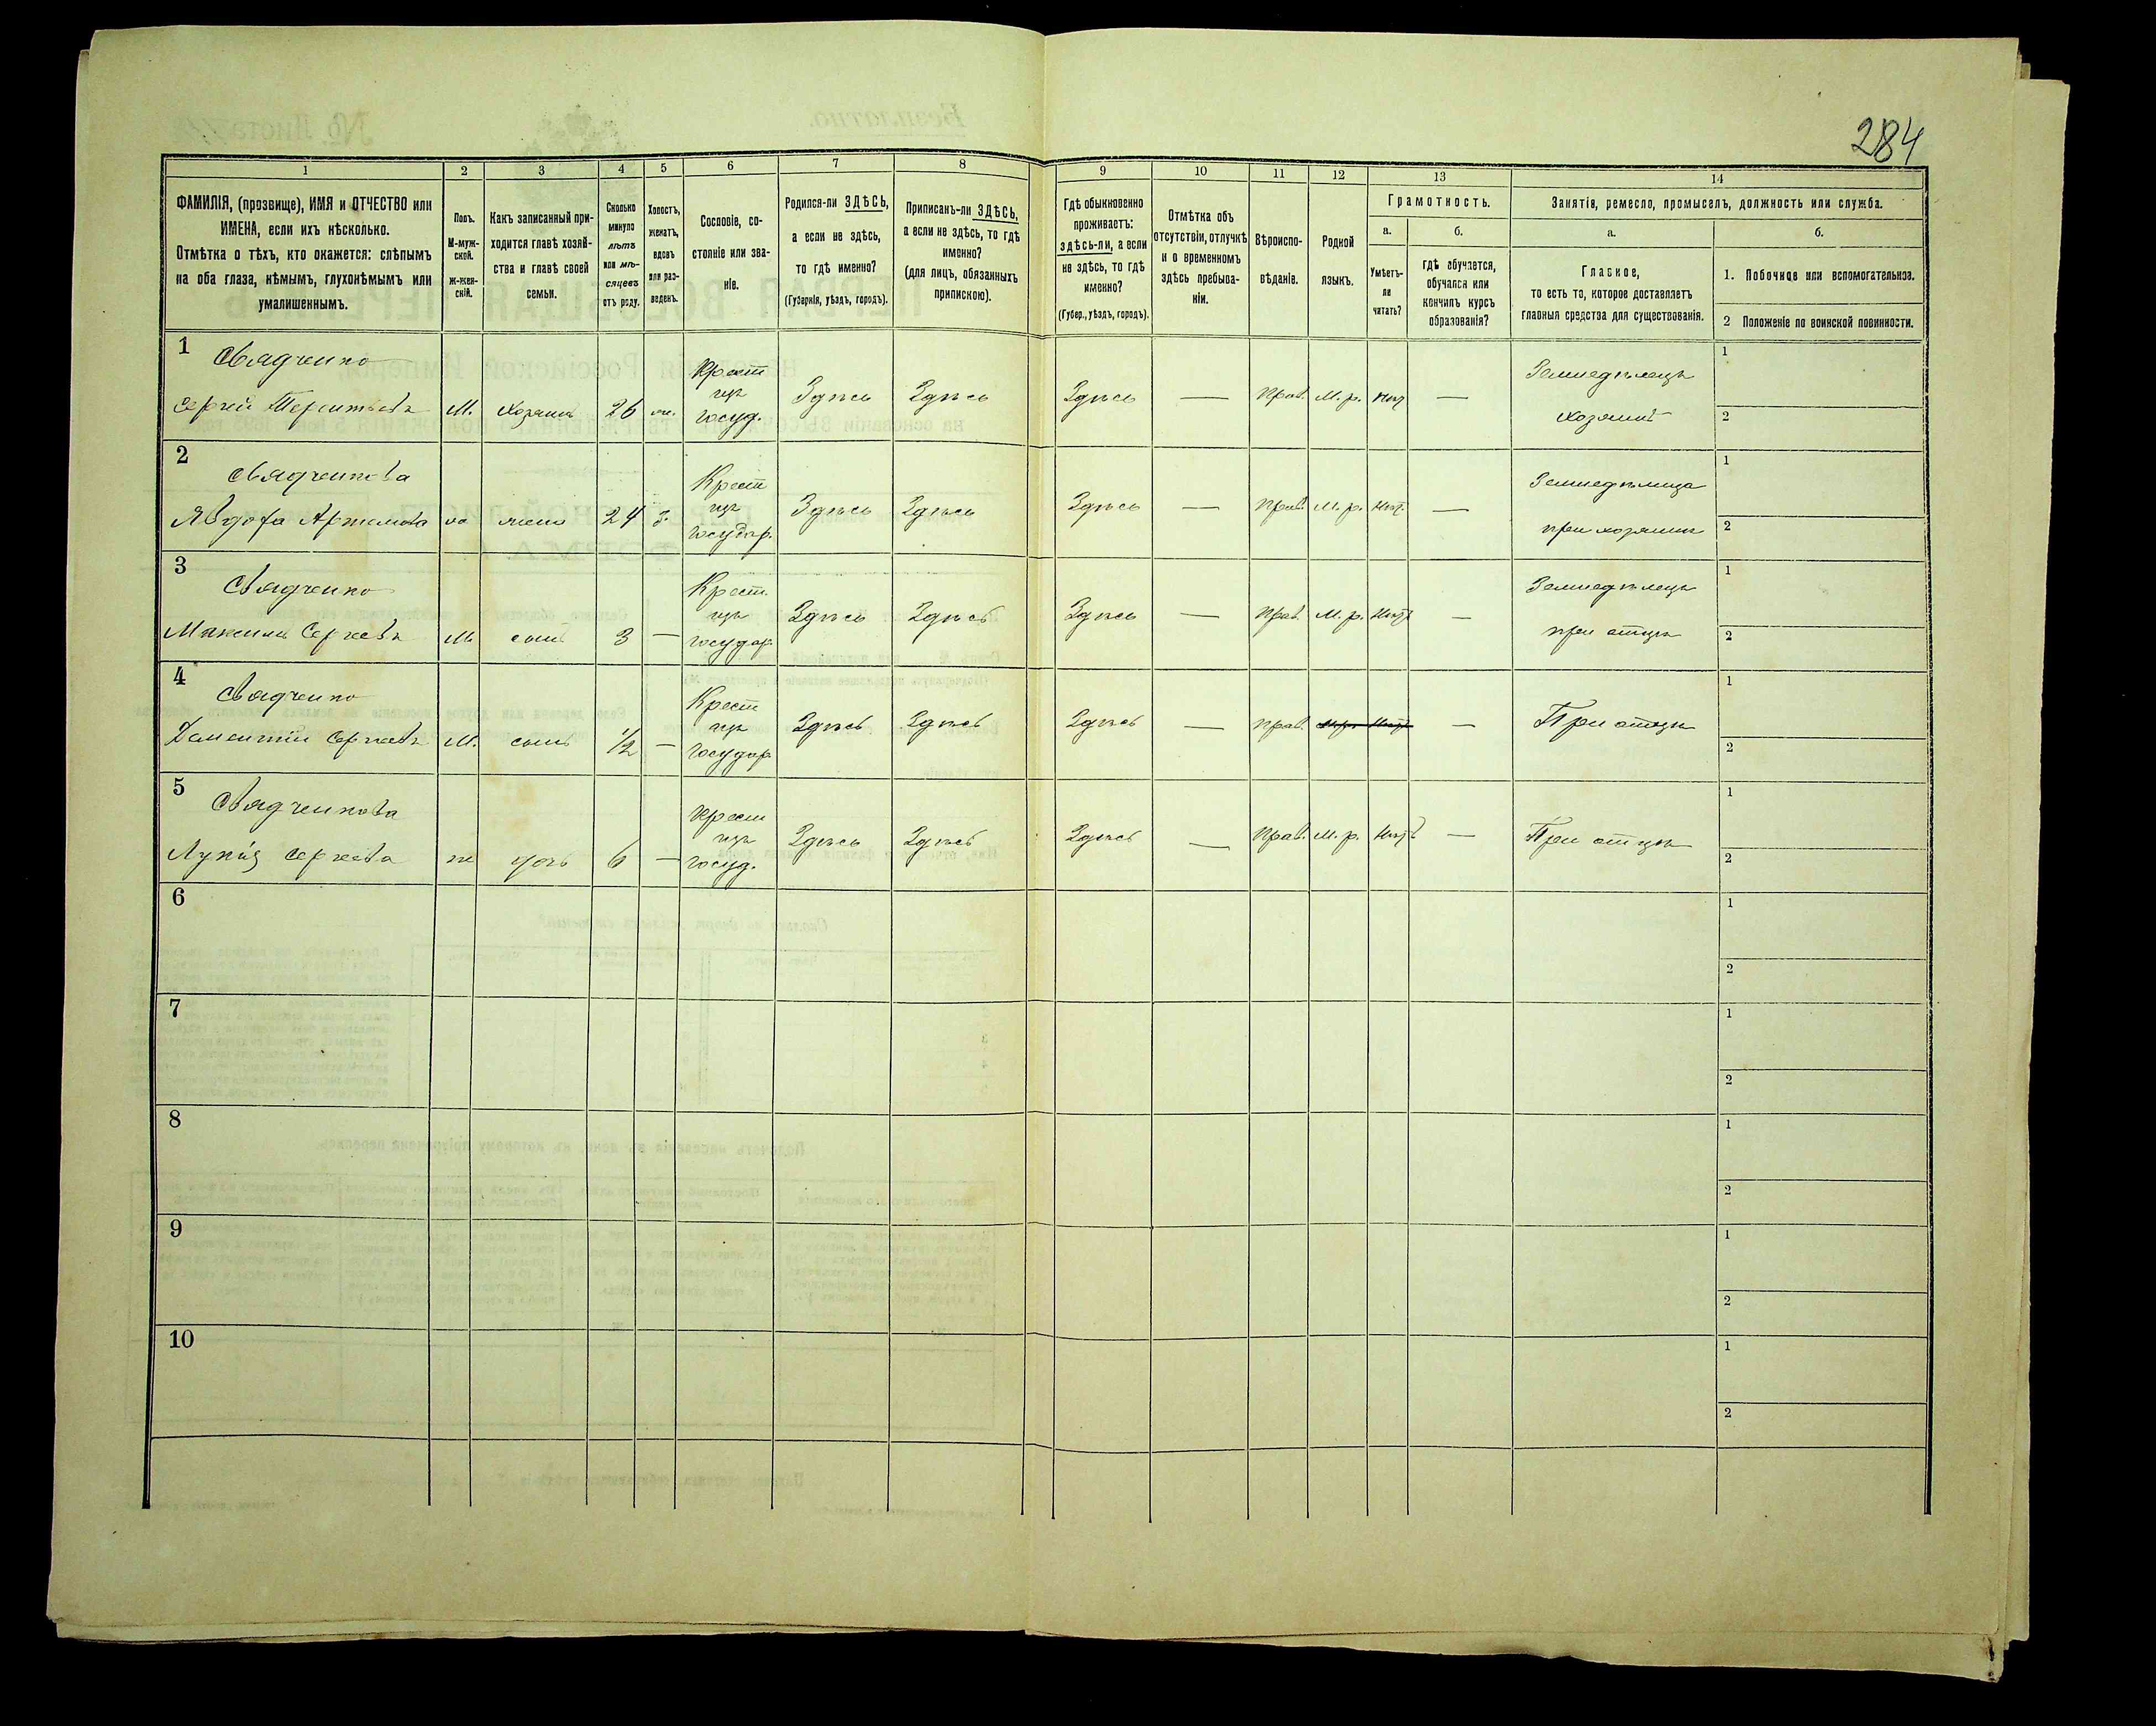 284
1 2 3 4 5 6 7 8 9 10 11 12 13 14
ФАМИЛІЯ, (прозвище), ИМЯ и ОТЧЕСТВО или
ИМЕНА, если ихъ нѣсколько.
Отмѣтка о тѣхъ, кто окажется: слѣпымъ
на оба глаза, нѣмымъ, глухонѣмымъ или
умалишеннымъ.
Полъ.
М-муж-
ской.
ж-жен-
скій.
Какъ записанный при-
ходится главѣ хозяй-
ства и главѣ своей
семьи.
Сколько
минуло
лѣтъ
или мѣ-
сяцевъ
отъ роду.
Холостъ,
женатъ,
вдовъ
или раз-
веденъ.
Сословіе, со-
стояніе или зва-
ніе.
Родился-ли ЗДѢСЬ,
а если не здѣсь,
то гдѣ именно?
(Губернія, уѣздъ, городъ).
Приписанъ-ли ЗДѢСЬ,
а если не здѣсь, то гдѣ
именно?
(для лицъ, обязанныхъ
припискою).
Гдѣ обыкновенно
проживаетъ:
здѣсь-ли, а если
не здѣсь, то гдѣ
именно?
(Губер., уѣздъ, городъ).
Отмѣтка объ
отсутствіи, отлучкѣ
и о временномъ
здѣсь пребыва-
ніи.
Вѣроиспо-
вѣданіе.
Родной
языкъ.
Грамотность.
а. б.
Умѣетъ-
ли
читать?
гдѣ обучается,
обучался или
кончилъ курсъ
образованія?
Занятія, ремесло, промыселъ, должность или служба.
а. б.
Главное,
то есть то, которое доставляетъ
главныя средства для существованія.
1. Побочное или вспомогательное.
2 Положеніе по воинской повинности.
1 Свядченко Крест Земледѣлецъ 1
изъ
Сергѣй Терентьевъ М. Хозяинъ 26 госуд. Здѣсь Здѣсь Здѣсь — Прав. М. р. нѣт — Хозяинъ 2
2 Свядченкова Крест Земледѣлица 1
изъ
Явдоха Артемова жена 24 з. государ. Здѣсь Здѣсь Здѣсь — Прав. М. р. Нѣт. — при хозяинѣ 2
3 Свядченко Крест. Земледѣлецъ 1
изъ
Максимъ Сергѣевъ М. сынъ 3 — государ. Здѣсь Здѣсь Здѣсь — Прав. М. р. Нѣтъ — при отцѣ 2
4 Свядченко Крест 1
изъ
Дементій Сергѣевъ М. сынъ 1/2 — государ. Здѣсь Здѣсь Здѣсь — Прав. М. р. Нѣтъ — При отцѣ 2
5 Свядченкова Крест 1
изъ
Лукія Сергѣева ж дочь 6 — госуд. Здѣсь Здѣсь Здѣсь — Прав. М. р. Нѣтъ — При отцѣ 2
6 1
2
7 1
2
8 1
2
9 1
2
10 1
2